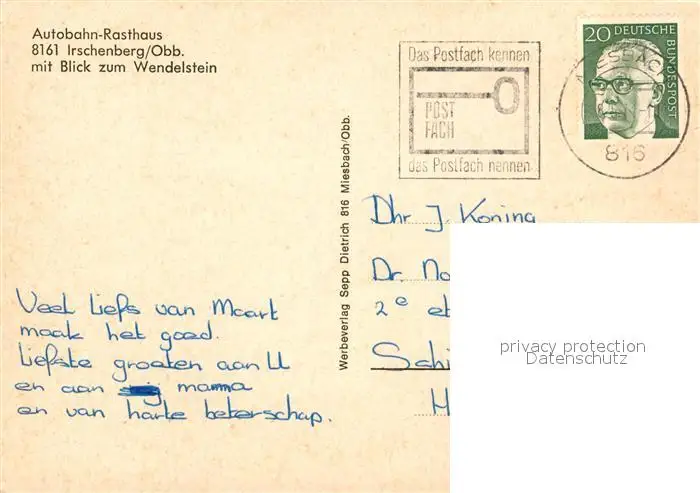 Autobahn-Rasthaus
8161 Irschenberg/Obb.
mit Blick zum Wendelstein
Das Postfach kennen
POST
FACH
das Postfach nennen
20 DEUTSCHE
BUNDESPOST
MIESBACH
816
Werbeverlag Sepp Dietrich 816 Miesbach/Obb.
Dhr J. Koning
Dr. No
2e et
Schi
H
privacy protection
Datenschutz
Veel liefs van Maart
maak het goed.
liefste groeten aan U
en aan mamma
en van harte beterschap.